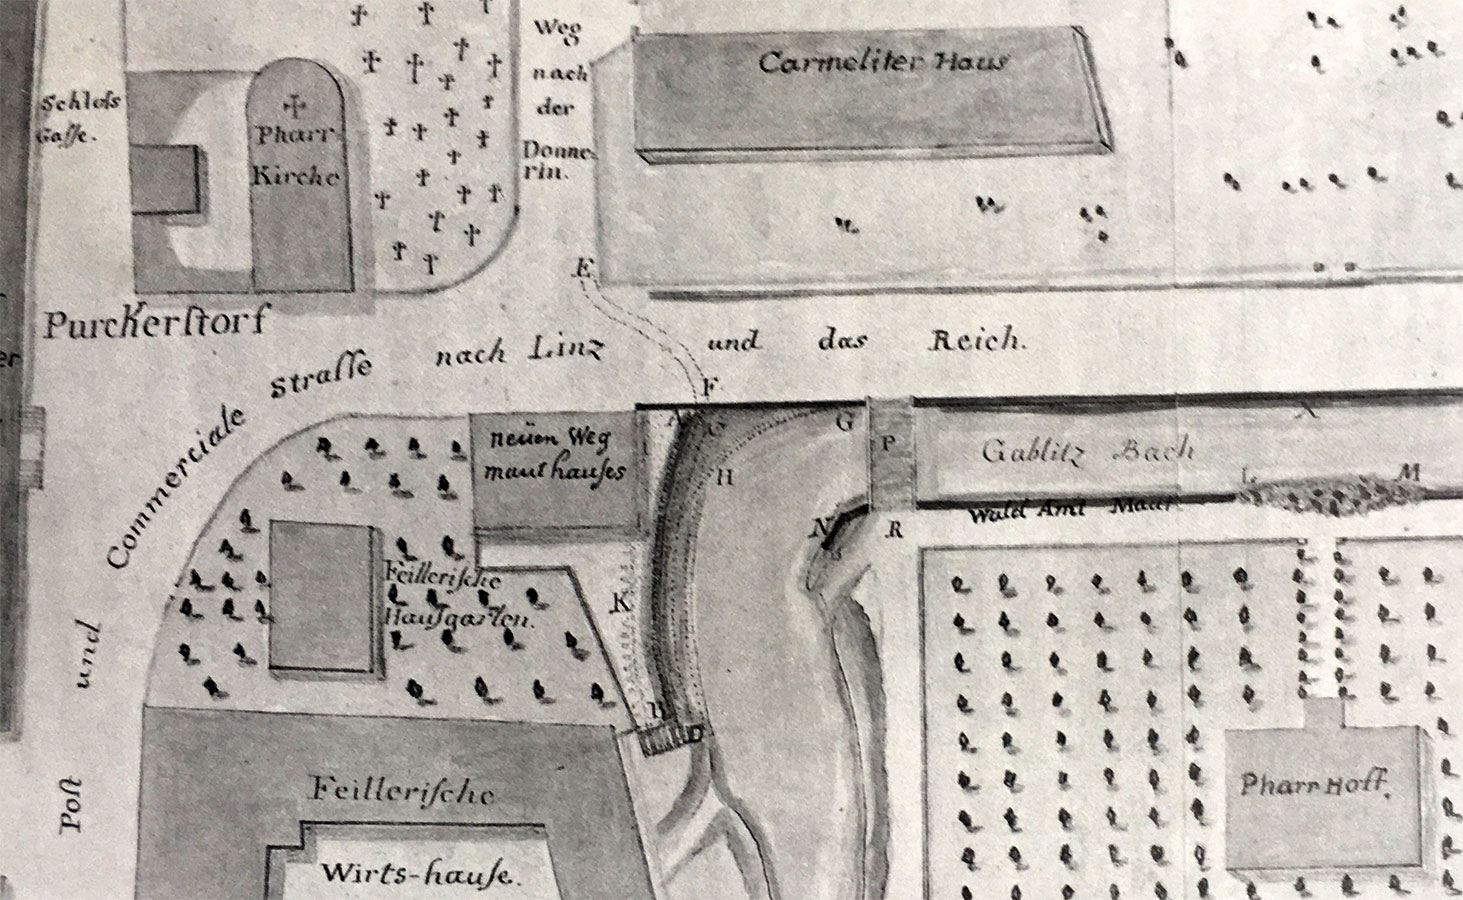 Weg
nach
der
Donne-
rin.
Carmeliter Haus
Schloſs
Gaſſe.
Pharr-
Kirche
E
Purckerſtorf
Post und Commerciale straſſe nach Linz und das Reich.
F
A
G
G
P
H
neüen Weg
mauthauſes
Gablitz Bach
X
L
M
Wald Amt Maur
N
R
K
Feilleriſche
Hauſgarten.
B
D
Feilleriſche
Wirts-hauſe.
Pharr Hoff.
er